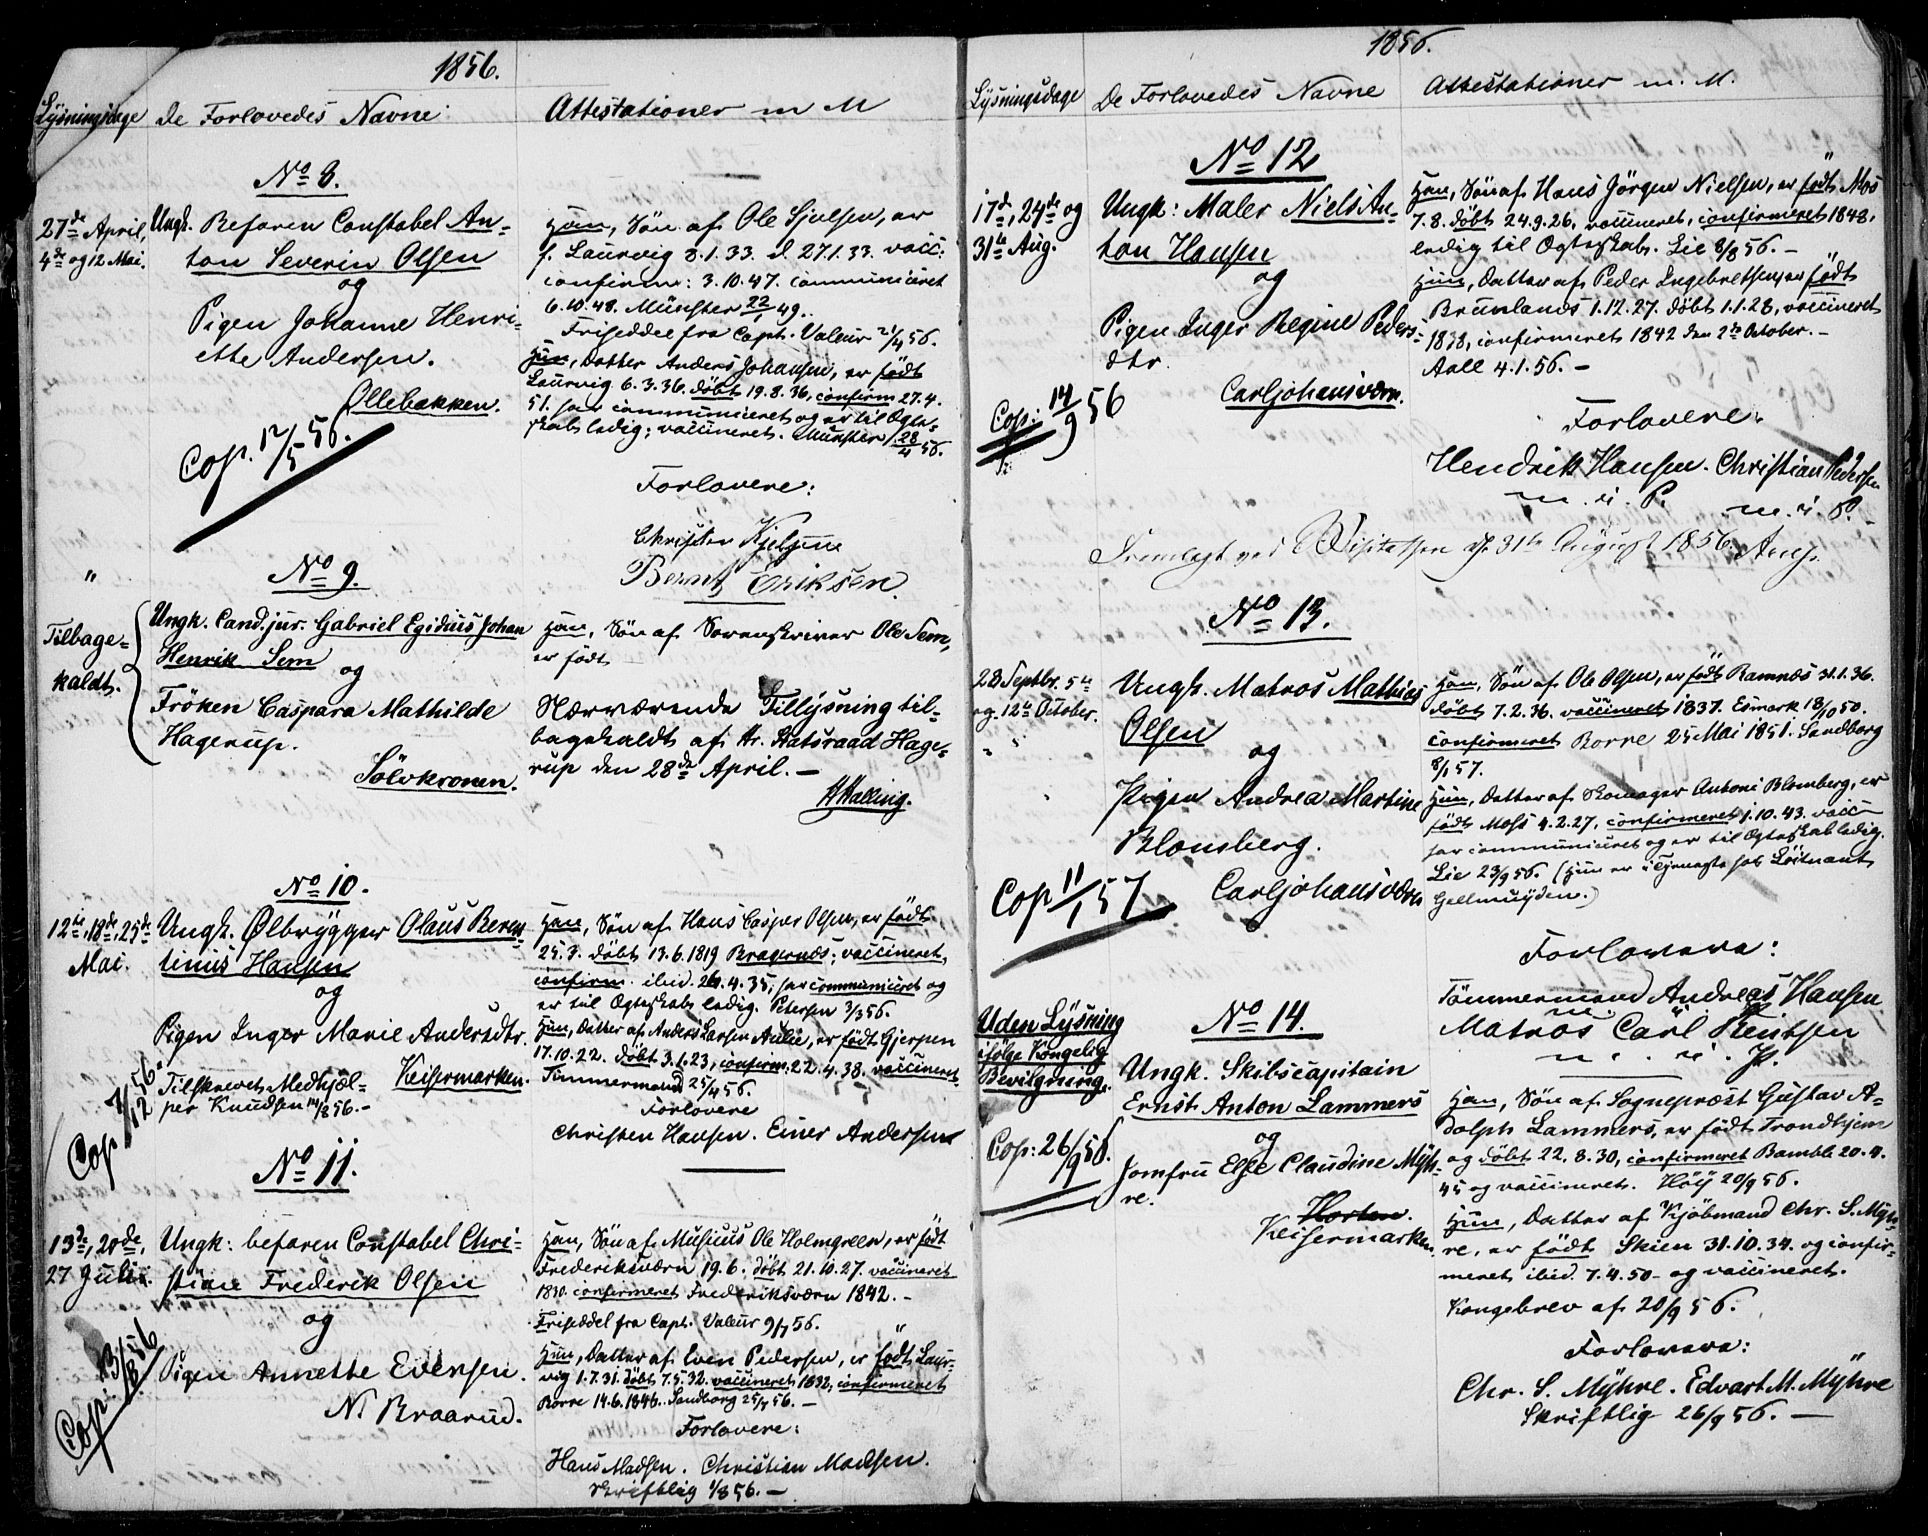 1856.
Lysningsdage De Forlovedes Navne Attestationer m M
No 8.
27de April,
4de og 12 Mai.
Ungk. Befaren Constabel An-
ton Severin Olsen
og
Pigen Johanne Henri-
ette Andersen.
Ollebakken.
Cop. 12/5 56.
Han, Søn af Ole Sjulsen, er
f. Laurvig 8.1.33. d 27.1.33. vacc:
confirm: 3.10.47. communiceret
6.10.48. Münster 22/1 49.
Friseddel fra Capt. Valeur 21/4 56.
Hun, Datter Anders Johansen, er født
Laurvig 6.3.36. døbt 19.8.36, confirm 27.4.
51. har communiceret og er til Ægte-
skab ledig; vaccineret. Münster 28/4 56.
Forlovere:
Christen
Bernt Eriksen.
"
No 9.
Tilbage-
kaldt.
Ungk. Cand. jur. Gabriel Egidius Johan
Henrik Sem
og
Frøken Caspara Mathilde
Hagerup.
Sølvkronen.
Han, Søn af Sorenskriver Ole Sem,
er født
Nærværende Tillysning til-
bagekaldt af Hr. Statsraad Hage-
rup den 28de April. —
HHalling.
No 10.
12te, 18de, 25de
Mai.
Ungk. Ølbrygger Olaus Beren-
tinius Hansen
og
Pigen Inger Marie Andersdtr.
Keisermarken.
Tilskrevet Medhjæl-
per Knudsen 14/8 56. -
Cop 7/12 56.
Han, Søn af Hans Casper Olsen, er født
25.3. døbt 13.6.1819 Bragernæs; vaccineret,
confirm. ibid. 26.4.35, har communiceret og
er til Ægteskab ledig. Petersen 3/3 56.
Hun, Datter af Anders Larsen Aulie, er født Gjerpen
17.10.22. døbt 3.1.23, confirm. 22.4.38. vaccineret.
Timmermand 25/4 56.
Forlovere
Christen Hansen. Einer Andersen
No 11.
13de, 20de,
27 Juli.
Ungk: befaren Constabel Chri-
stian Frederik Olsen
og
Pigen Annette Evensen.
N. Braarud.
Cop: 3/8 56
Han, Søn af Musicus Ole Holmgreen, er født
Frederiksværn 19.6. døbt 21.10.27. vaccineret
1830. confirmeret Frederiksværn 1842. -
Friseddel fra Capt. Valeur 9/7 56.
Hun, Datter af Even Pedersen, er født Laur-
vig 1.7.31. døbt 7.5.32. vaccineret 1832, confirmeret
Borre 14.6.1846. Sandborg 25/7 56. —
Forlovere:
Hans Madsen. Christian Madsen.
Skriftlig 1/8 56. —
1856.
Lysningsdage De Forlovedes Navne Attestationer m. M.
No 12
17de, 24de og
31te Aug.
Ungk: Maler Niels An-
ton Hansen
og
Pigen Inger Regine Peders-
dtr.
Carljohansværn.
Cop: 14/9 56
Han, Søn af Hans Jörgen Nielsen, er født Mos
7.8. døbt 24.9.26, vaccineret, confirmeret 1843,
ledig til Ægteskab. Lie 8/8 56. —
Hun, Datter af Peder Ingebretsen, er født
Brunlands 1.12.27. døbt 1.1.28, vaccineret
1838, confirmeret 1842 den 2de October. -
Aall 4.1.56. —
Forlovere:
Hendrik Hansen. Christian Pedersen
m. i. P. m. i. P.
Fremlagt ved Visitatsen d. 31te August 1856
No 13.
28 Septbr. 5te
og 12te October.
Ungk. Matros Mathias
Olsen
og
Pigen Andrea Martine
Blomberg.
Carljohansværn
Cop 11/1 57
Han, Søn af Ole Olsen, er født Ramnæs 31.1.36.
døbt 7.2.36. vaccineret 1837. Esmark 18/10 50.
confirmeret Borre 25 Mai 1851. Sandborg
8/1 57.
Hun, Datter af Skomager Antoni Blomberg, er
født Moss 4.2.27, confirmeret 1.10.43. vacc
har communiceret og er til Ægteskab ledig.
Lie 23/9 56. (Hun er i Tjeneste hos Löitnant
Gellmuyden.)
Forlovere:
Tømmermand Andreas Hansen
Matros Carl Bentsen
m. i. P.
No 14.
Uden Lysning
ifølge Kongelig
Bevilgning.
Ungk. Skibscapitain
Ernst Anton Lammers
og
Jomfru Else Claudine Myh-
re.
Horten.
Keisermarken.
Cop: 26/9 56.
Han, Søn af Sogneprest Gustav A-
dolph Lammers, er født Trondhjem
og døbt 22.8.30, confirmeret Bamble 20.4.
45 og vaccineret. Höy 20/9 56.
Hun, Datter af Kjöbmand Chr. S. Myh-
re, er født Skien 31.10.34. og confir-
meret ibid. 7.4.50 - og vaccineret.
Kongebrev af 20/9 56.
Forlovere:
Chr. S. Myhre. Edvart M. Myhre
Skriftlig 26/9 56. —